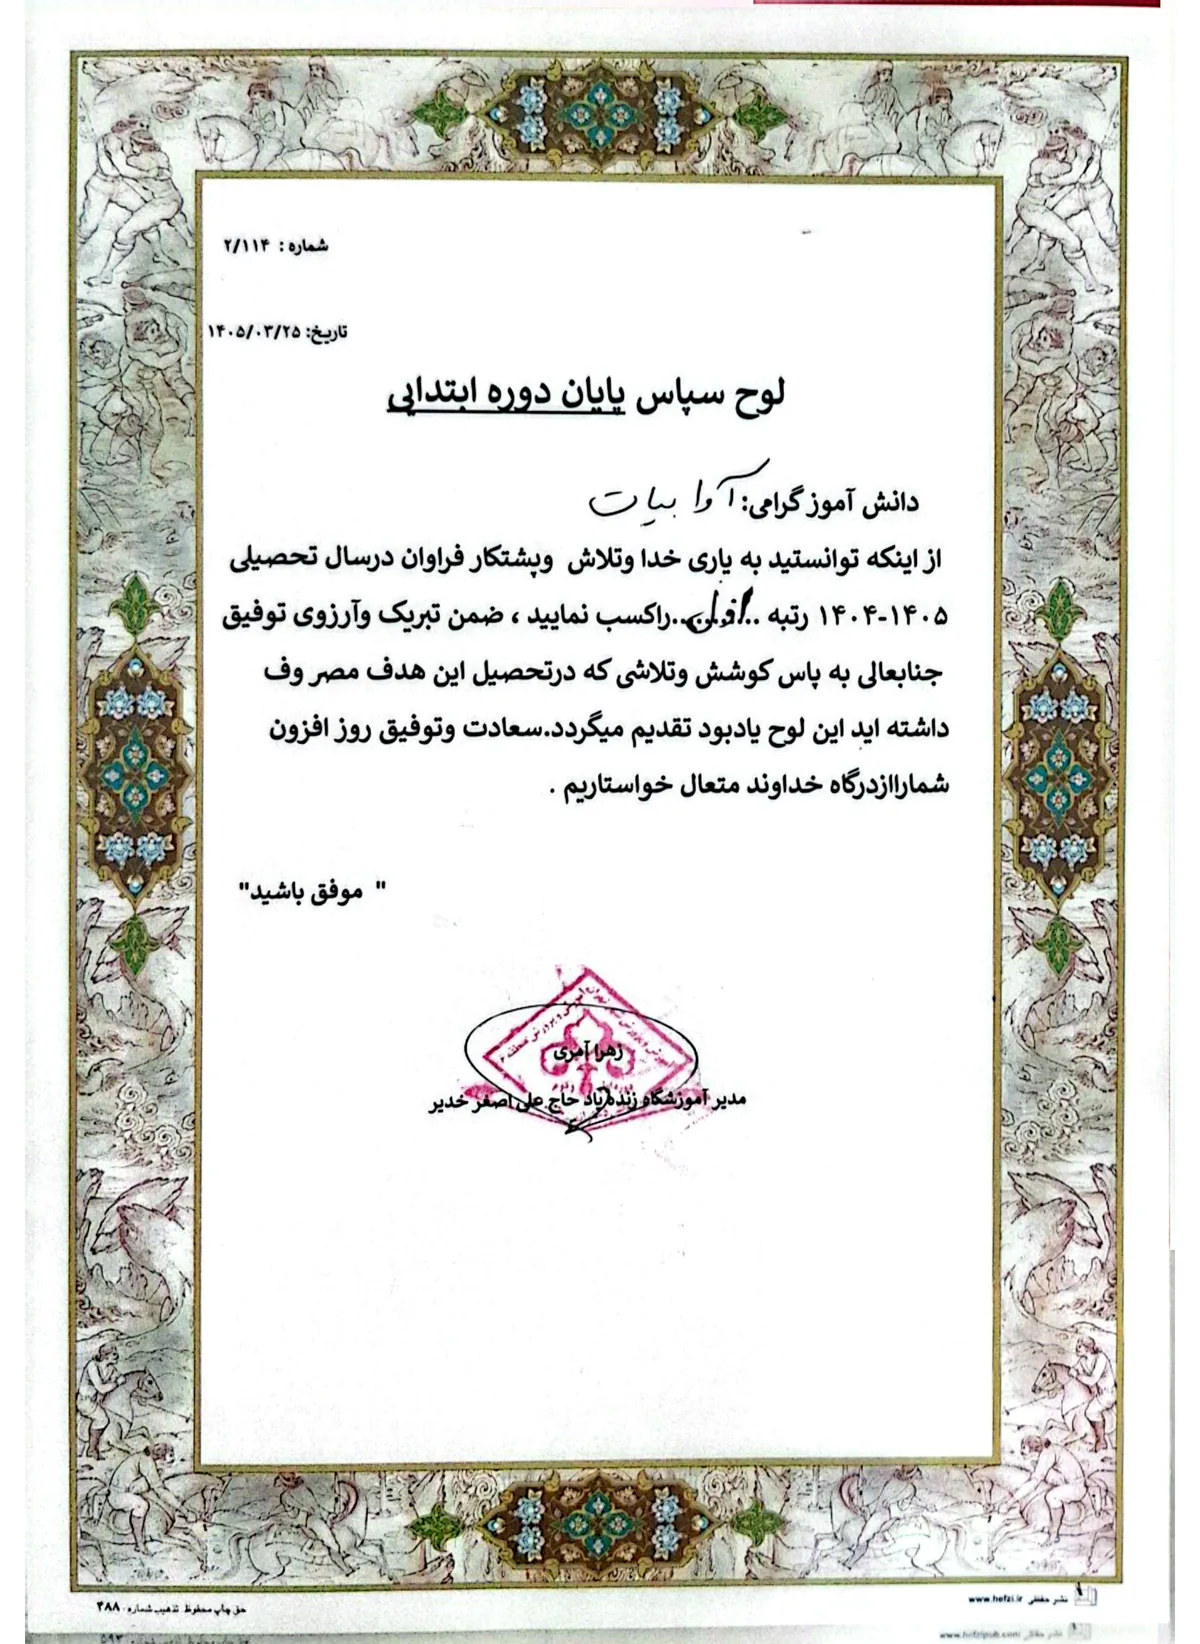 شماره: ۲/۱۱۴
تاریخ: ۱۴۰۵/۰۳/۲۵
لوح سپاس پایان دوره ابتدایی
دانش آموز گرامی: آوا بیات
از اینکه توانستید به یاری خدا وتلاش وپشتکار فراوان درسال تحصیلی
۱۴۰۴-۱۴۰۵ رتبه ..اول..راکسب نمایید ، ضمن تبریک وآرزوی توفیق
جنابعالی به پاس کوشش وتلاشی که درتحصیل این هدف مصر وف
داشته اید این لوح یادبود تقدیم میگردد.سعادت وتوفیق روز افزون
شماراازدرگاه خداوند متعال خواستاریم .
" موفق باشید"
زهرا آمری
مدیر آموزشگاه زنده یاد حاج علی اصغر خدیر
نشر حفظی www.hefzi.ir
حق چاپ محفوظ تذهیب شماره ۴۸۸
نشر حفظی www.hefzipub.com